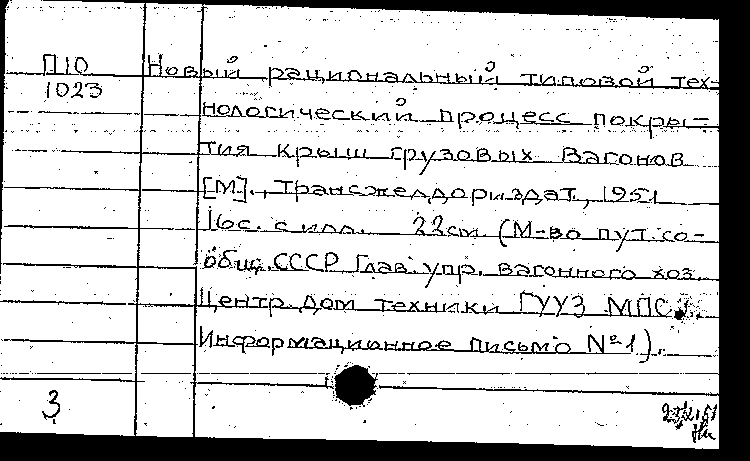 П10 Новый рациональный типовой тех-
1023
нологический процесс покры-
тия крыш грузовых вагонов
[М]., Трансжелдориздат, 1951
16с. с илл. 22см (М-во пут. со-
общ. СССР Глав. упр. вагонного хоз.
Центр. дом техники ГУУЗ МПС.
Информационное письмо №1).
3